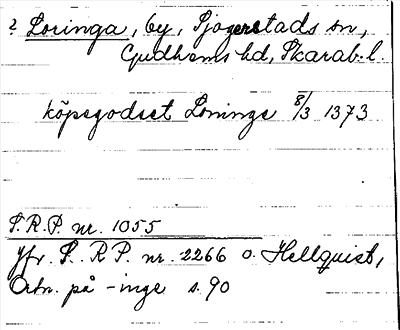 ? Loringa, by, Sjogerstads sn,
Gudhems hd, Skarab. l.
köpegodset Loninge 8/3 1373
S.R.P. nr. 1055
Jfr. S. R P. nr. 2266 o. Hellquist,
Ortn. på -inge s. 90